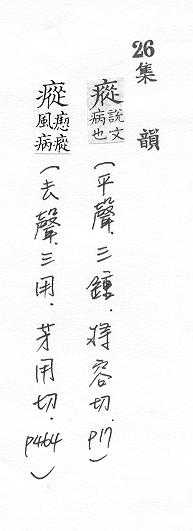 26 集韻
瘲 說文病也（平聲.三鍾.將容切.P17）
瘲 瘛瘲風病（去聲.三用.芽用切.P464）